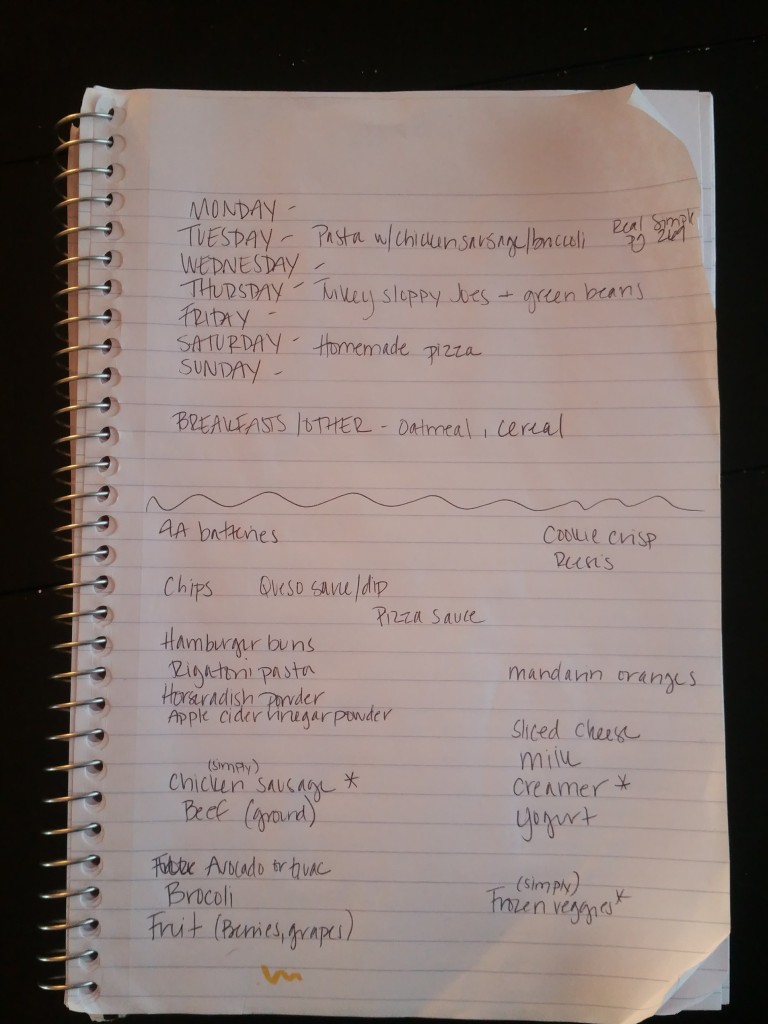 MONDAY -
TUESDAY - Pasta w/chicken sausage/broccoli Real Simple
WEDNESDAY -
THURSDAY - Turkey sloppy Joes + green beans
FRIDAY -
SATURDAY - Homemade pizza
SUNDAY -
BREAKFASTS/OTHER - Oatmeal, cereal
AA batteries
Cookie crisp
Chips Queso sauce/dip
Pizza sauce
Hamburger buns
Rigatoni pasta
Horseradish powder
Apple cider vinegar powder
(simply)
Chicken sausage *
Beef (ground)
Avocado or guac
Brocoli
Fruit (Berries, grapes)
mandarin oranges
Sliced cheese
milk
creamer *
yogurt
(simply)
Frozen veggies *